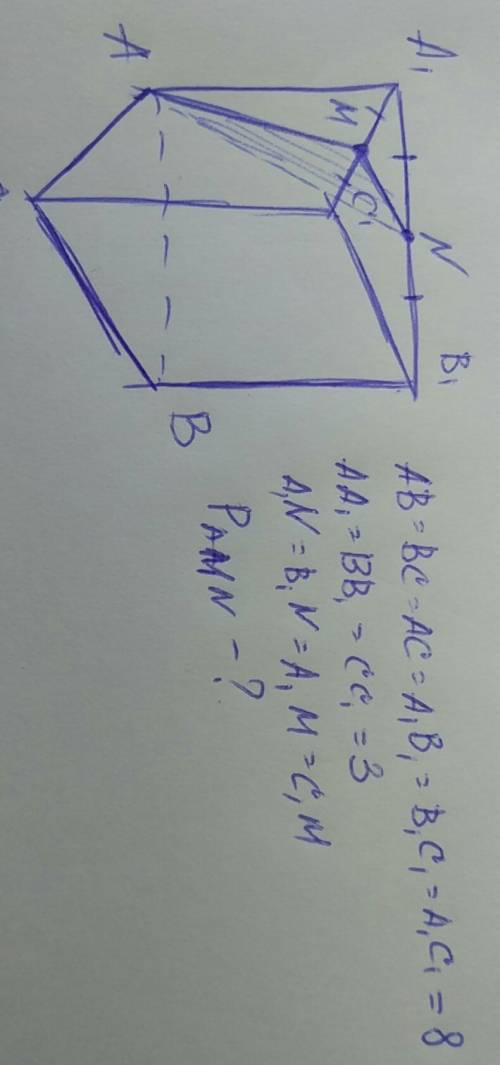 A₁
B₁
N
M
C₁
A
B
AB = BC = AC = A₁B₁ = B₁C₁ = A₁C₁ = 8
AA₁ = BB₁ = CC₁ = 3
A₁N = B₁N = A₁M = C₁M
P_AMN - ?